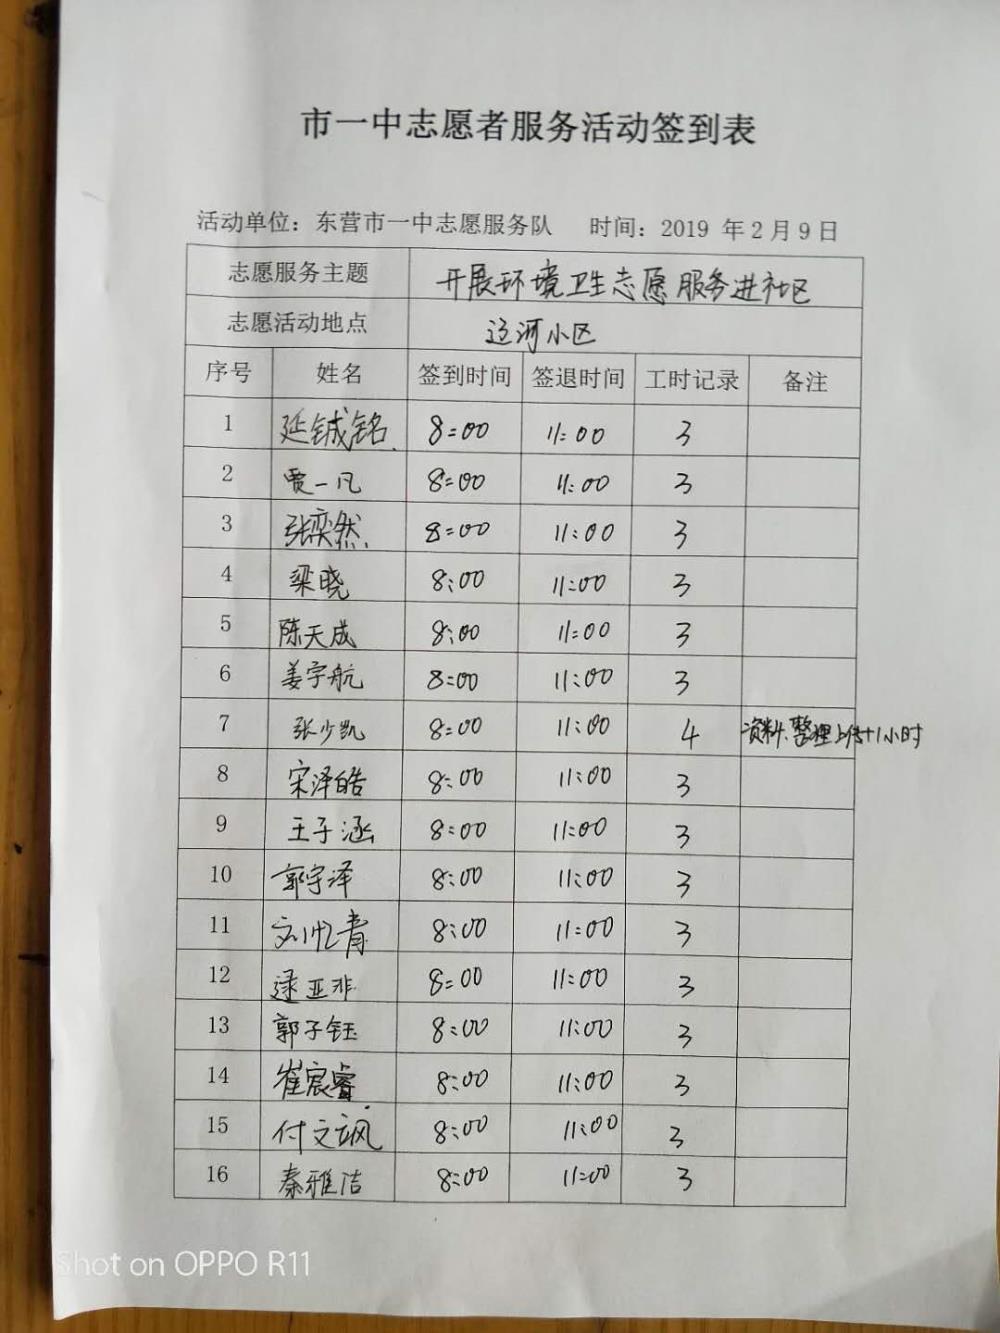 市一中志愿者服务活动签到表
活动单位：东营市一中志愿服务队 时间：2019 年 2 月 9 日
志愿服务主题 开展环境卫生志愿服务进社区
志愿活动地点 辽河小区
序号 姓名 签到时间 签退时间 工时记录 备注
1 延铖铭 8:00 11:00 3
2 贾一凡 8:00 11:00 3
3 张奕然 8:00 11:00 3
4 梁晓 8:00 11:00 3
5 陈天成 8:00 11:00 3
6 姜宇航 8:00 11:00 3
7 张少凯 8:00 11:00 4 资料、整理上传+1小时
8 宋泽皓 8:00 11:00 3
9 王子涵 8:00 11:00 3
10 郭宇泽 8:00 11:00 3
11 刘忆青 8:00 11:00 3
12 逯亚非 8:00 11:00 3
13 郭子钰 8:00 11:00 3
14 崔宸睿 8:00 11:00 3
15 付文飒 8:00 11:00 3
16 秦雅洁 8:00 11:00 3
Shot on OPPO R11